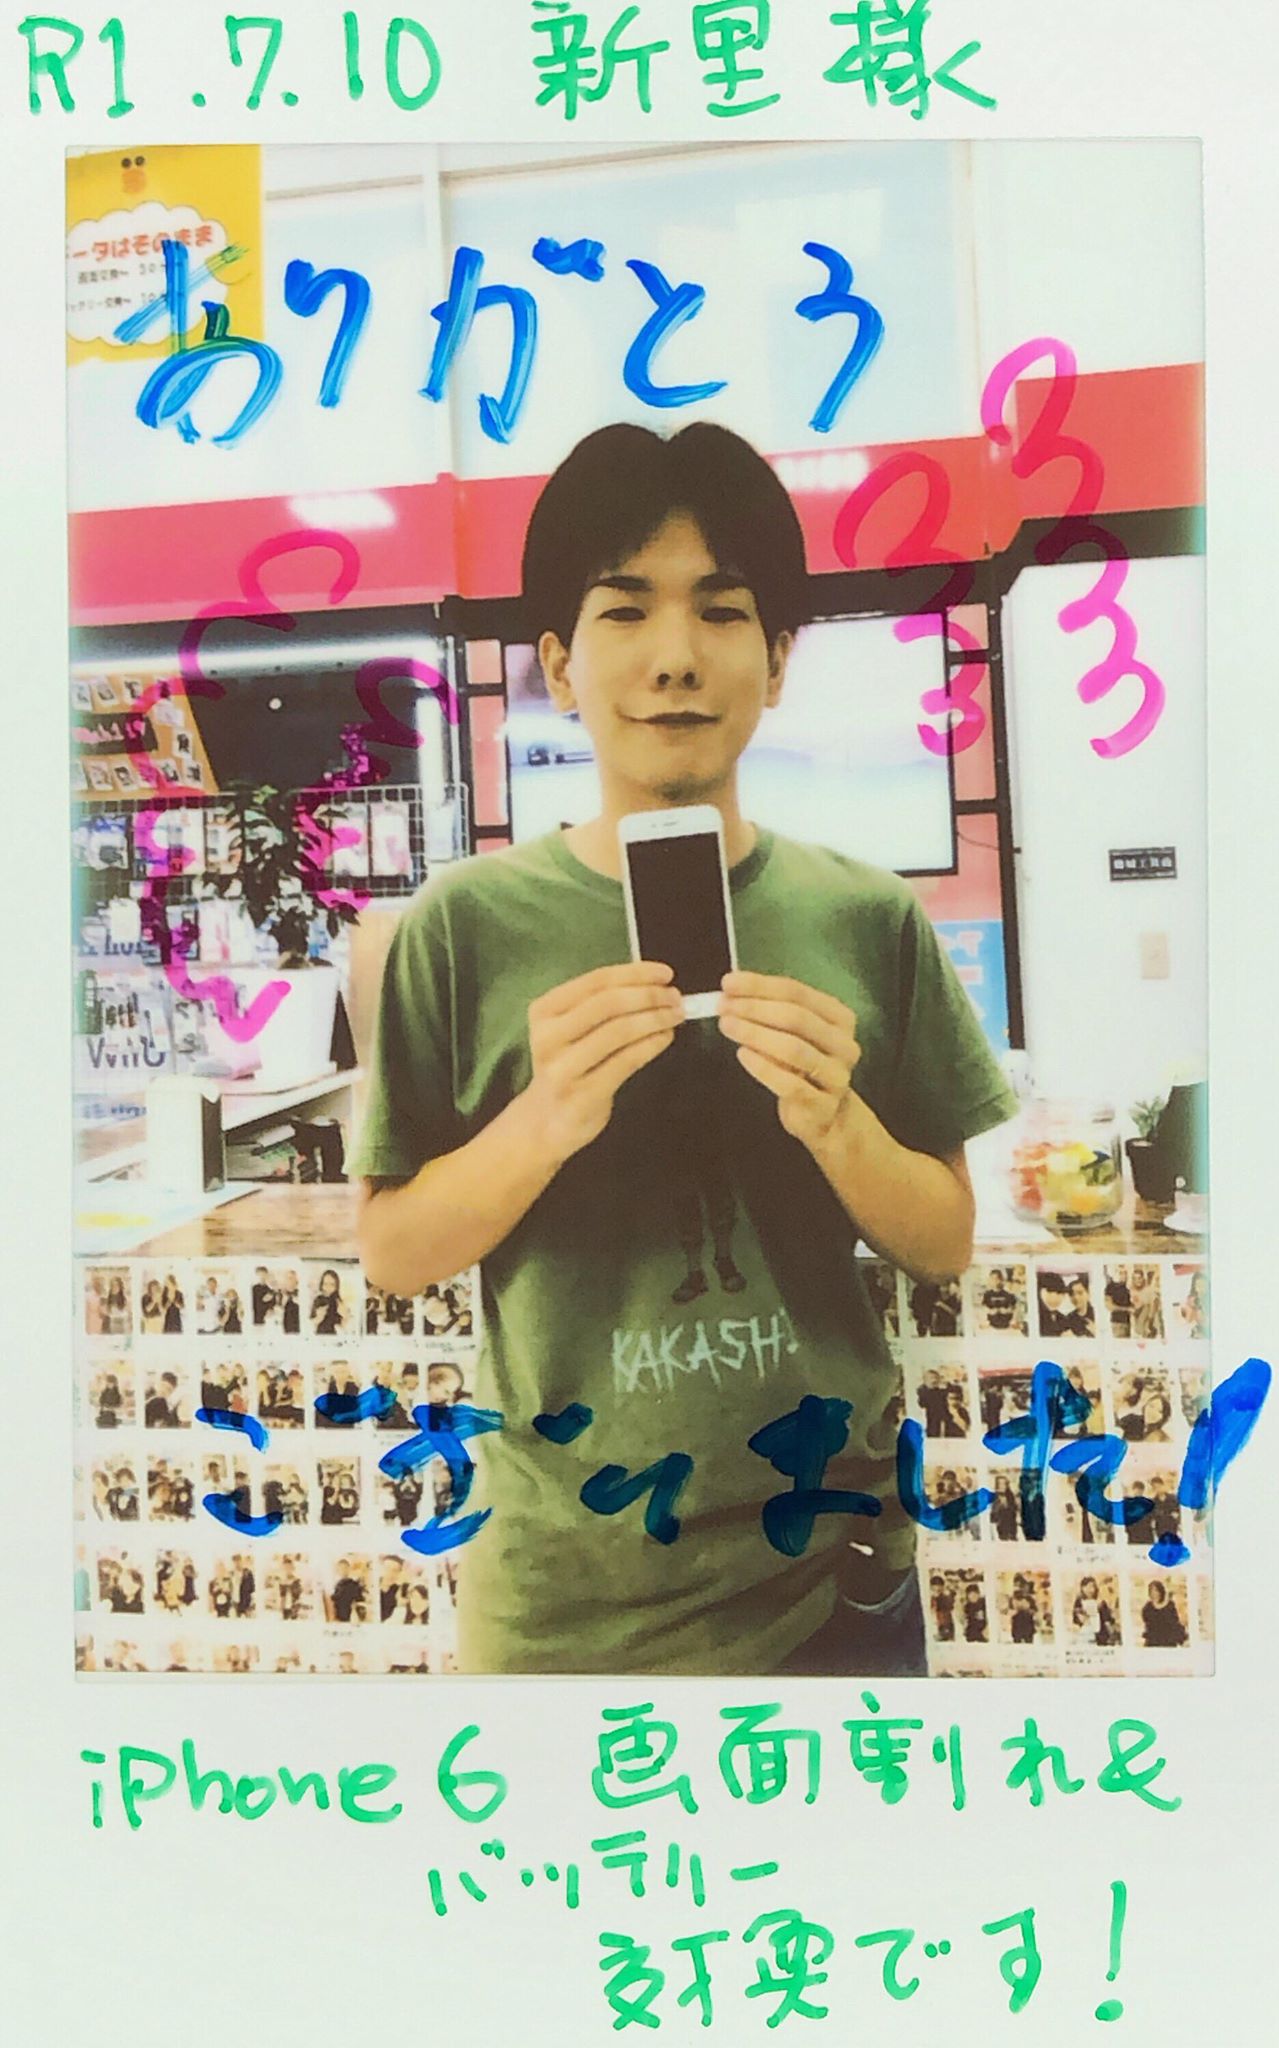 R1.7.10 新里様
データはそのまま
ありがとう
KAKASHI
ございました!
iPhone6 画面割れ&
バッテリー
交換です!